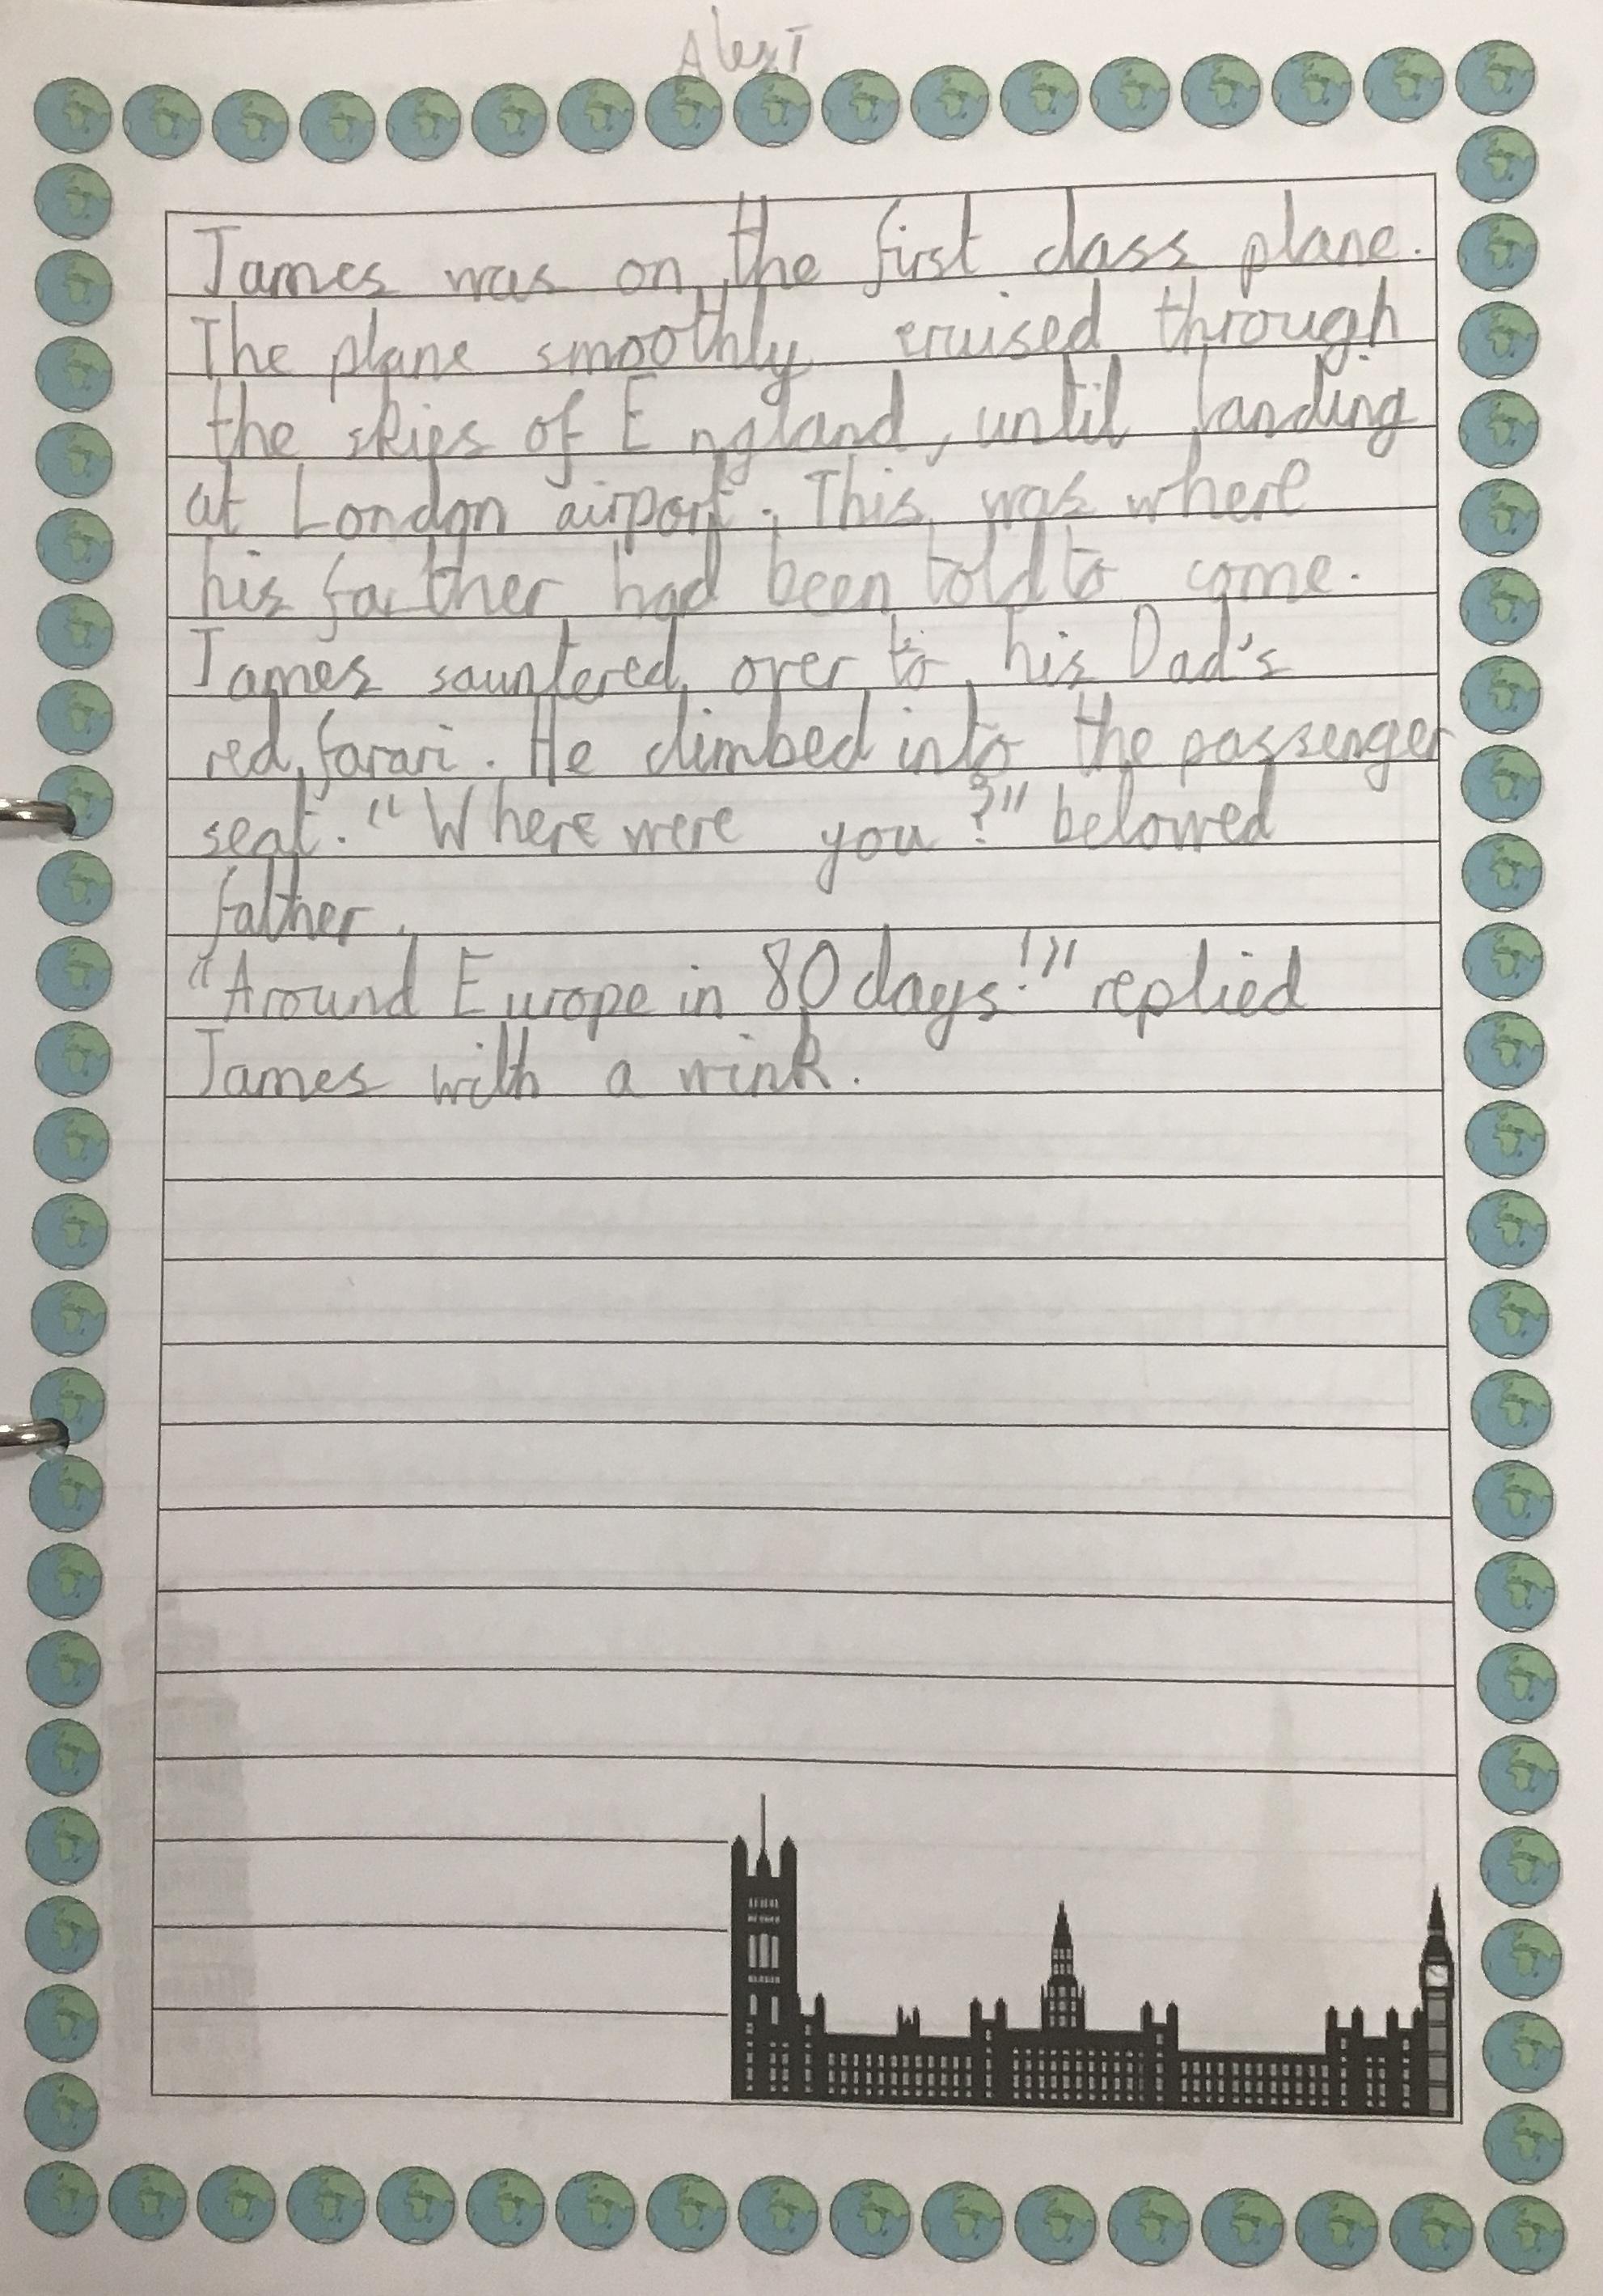 Alex T
James was on the first class plane.
The plane smoothly cruised through
the skies of England, until landing
at London airport. This was where
his farther had been told to come.
James sauntered over to his Dad's
red farari. He climbed into the passenger
seat. "Where were you?" belowed
father.
"Around Europe in 80 days!" replied
James with a wink.